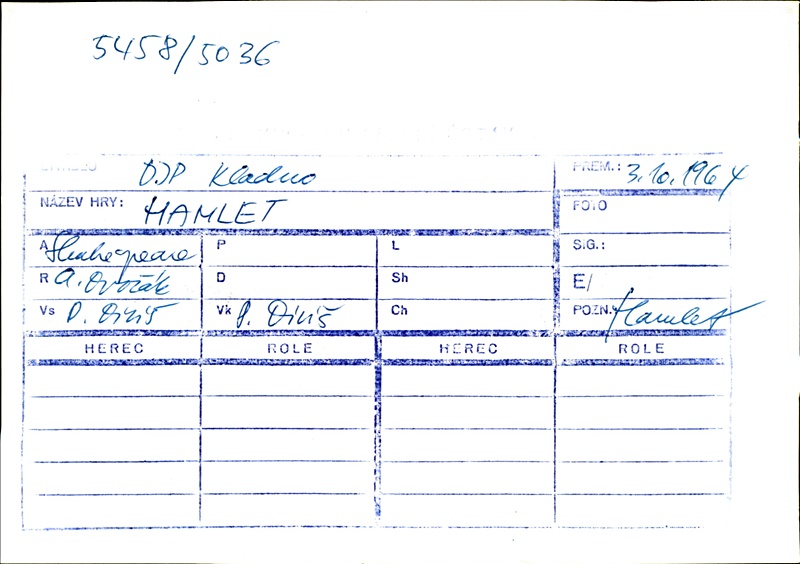 5458/5036
DIVADLO DJP Kladno PREM.: 3.10.1964
NÁZEV HRY: HAMLET FOTO
A Shakespeare P L SIG.:
R A. Dvořák D Sh E/
Vs P. Diniš Vk P. Diniš Ch POZN.: Hamlet
HEREC ROLE HEREC ROLE